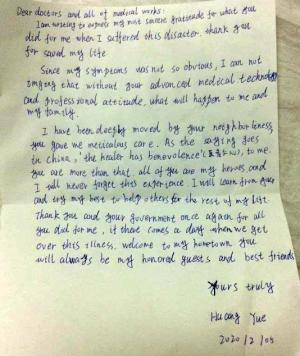 Dear doctors and all of medical works:
I am writing to express my most severe gratitude for what you
did for me when I suffered this disaster. thank you
for saved my life
Since my symptoms was not so obvious, I can not
imging that without your advanced medical technology
and professional attitude, what will happen to me and
my family.
I have been deeply moved by your neighborliness,
you gave me meticulous care. As the saying goes
in china, 'the healer has benevolence'(医者仁心), to me,
you are more than that. all of you are my heroes, and
I will never forget this experience. I will learn from you
and try my best to help others for the rest of my life.
Thank you and your government once again for all
you did for me, if there comes a day when we get
over this illness, welcome to my hometown you
will always be my honored guests and best friends
yours truly
Huang Yue
2020/2/09